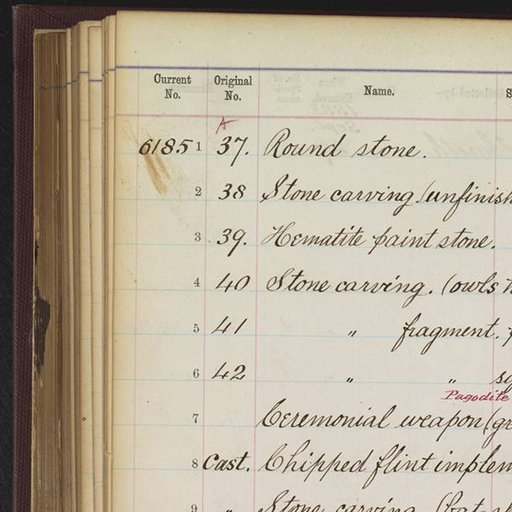 Current No. Original No. Name.
A
61851 37. Round stone.
2 38 Stone carving (unfinish
3 39. Hematite paint stone.
4 40 Stone carving. (owls h
5 41 " fragment.
6 42 " "
Pagodite
7 Ceremonial weapon (gr
8 Cast. Chipped flint implem
9 " Stone carving (bat-s